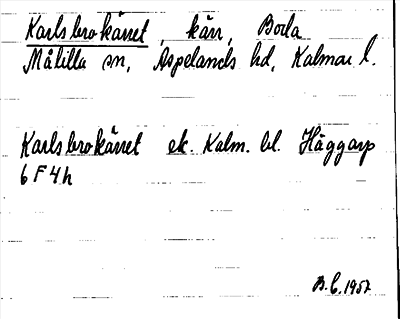 Karlsbrokärret, kärr, Boda
Målilla sn, Aspelands hd, Kalmar l.
Karlsbrokärret ek. Kalm. bl. Häggarp
6 F 4 h
B.E. 1957